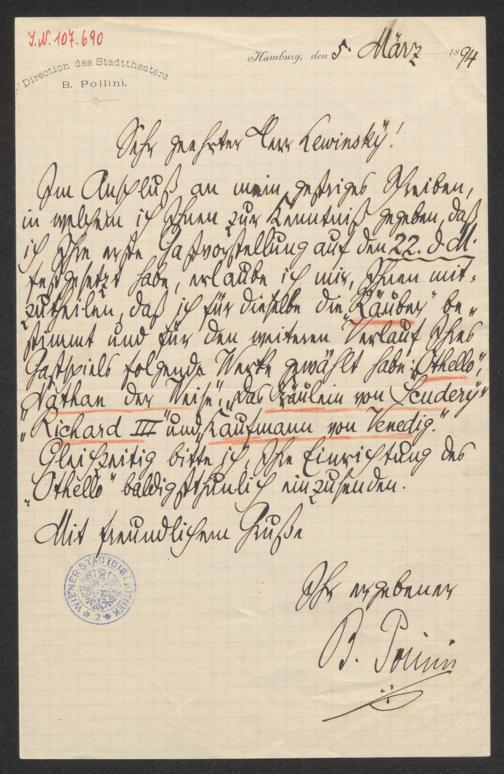 J.N. 107.690
Direction des Stadttheaters
B. Pollini.
Hamburg, den 5. März 1894
Sehr geehrter Herr Lewinsky!
Im Anschluß an mein gestriges Schreiben,
in welchem ich Ihnen zur Kenntniß gegeben, daß
ich Ihre erste Gastvorstellung auf den 22. d. M.
festgesetzt habe, erlaube ich mir, Ihnen mit-
zutheilen, daß ich für dieselbe die „Räuber" be-
stimmt und für den weiteren Verlauf Ihres
Gastspiels folgende Werke gewählt habe: „Othello",
„Nathan der Weise", „Das Fräulein von Scudery"
„Richard III" und „Kaufmann von Venedig."
Gleichzeitig bitte ich, Ihre Einrichtung des
„Othello" baldigstthunlich einzusenden.
Mit freundlichem Gruße
Ihr ergebener
B. Pollini
WIENER STADTBIBLIOTHEK